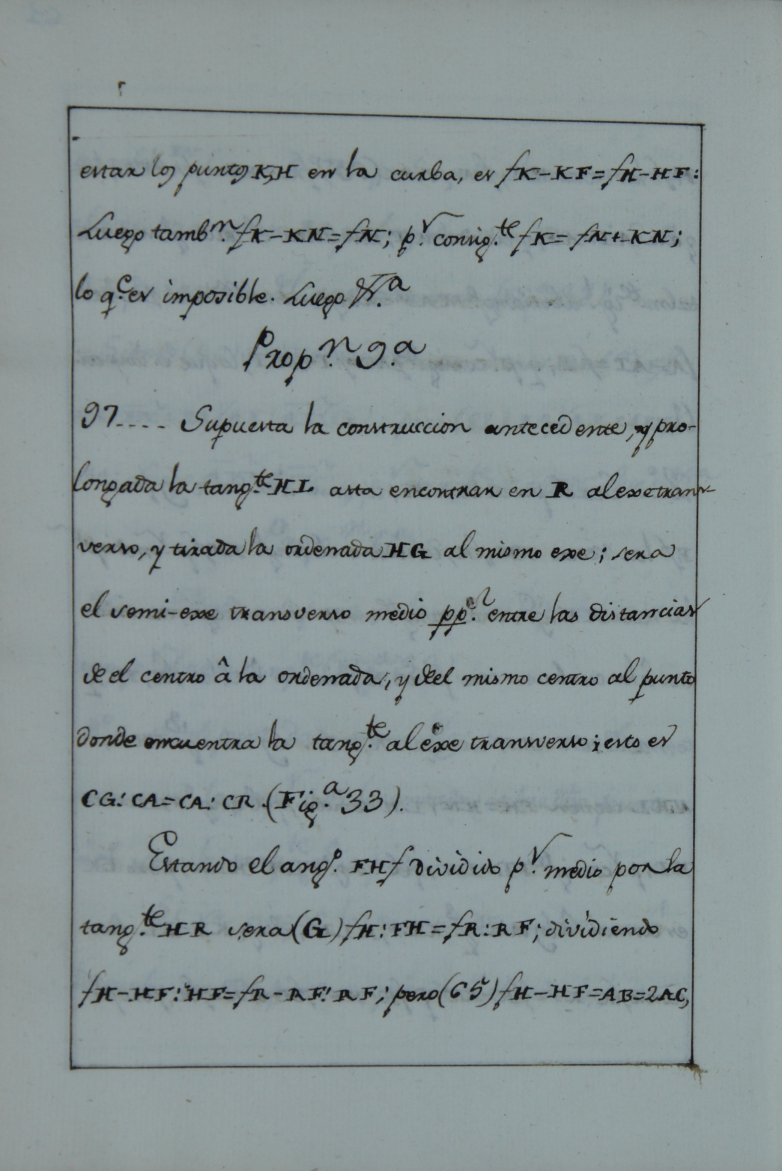 estar los puntos K, H en la curba, es fK-KF=fH-HF:
Luego tambn. fK-KN=fN; pr. consigte. fK= fN+KN;
lo qe. es imposible. Luego &ra.
Propn. 9a
97.... Supuesta la construccion antecedente, y pro-
longada la tangte. HL asta encontrar en R al exe trans-
verso, y tirada la ordenada HG al mismo exe; sera
el semi-exe transverso medio ppel. entre las distancias
de el centro â la ordenada, y deel mismo centro al punto
donde encuentra la tangte. al exe transverso; esto es
CG: CA=CA: CR. (Figa. 33).
Estando el ango. FHf dividido pr. medio por la
tangte. HR sera (G) fH: FH=fR: RF; dividiendo
fH-HF: HF=fR-RF: RF; pero (65) fH-HF=AB=2AC,